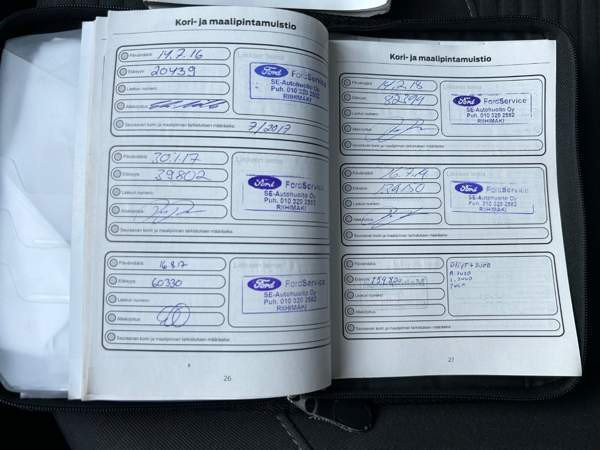 Kori- ja maalipintamuistio
Päivämäärä 14.7.16
Etäisyys 20439
Laskun numero
Allekirjoitus
Seuraavan korin ja maalipinnan tarkistuksen määräaika: 7/2017
Ford FordService
SE-Autohuolto Oy
Puh. 010 320 2582
RIIHIMÄKI
Päivämäärä 30.1.17
Etäisyys 39802
Laskun numero
Allekirjoitus
Seuraavan korin ja maalipinnan tarkistuksen määräaika:
Ford FordService
SE-Autohuolto Oy
Puh. 010 320 2582
RIIHIMÄKI
Päivämäärä 16.8.17
Etäisyys 60330
Laskun numero
Allekirjoitus
Seuraavan korin ja maalipinnan tarkistuksen määräaika:
Ford FordService
SE-Autohuolto Oy
Puh. 010 320 2582
RIIHIMÄKI
26
Kori- ja maalipintamuistio
Päivämäärä 14.2.18
Etäisyys 82394
Laskun numero
Allekirjoitus
Seuraavan korin ja maalipinnan tarkistuksen määräaika:
Ford FordService
SE-Autohuolto Oy
Puh. 010 320 2582
RIIHIMÄKI
Päivämäärä
Etäisyys
Laskun numero
Allekirjoitus
Seuraavan korin ja maalipinnan tarkistuksen määräaika:
Ford FordService
SE-Autohuolto Oy
Puh. 010 320 2582
RIIHIMÄKI
Päivämäärä
Etäisyys 159.820
Laskun numero
Allekirjoitus
Seuraavan korin ja maalipinnan tarkistuksen määräaika:
27